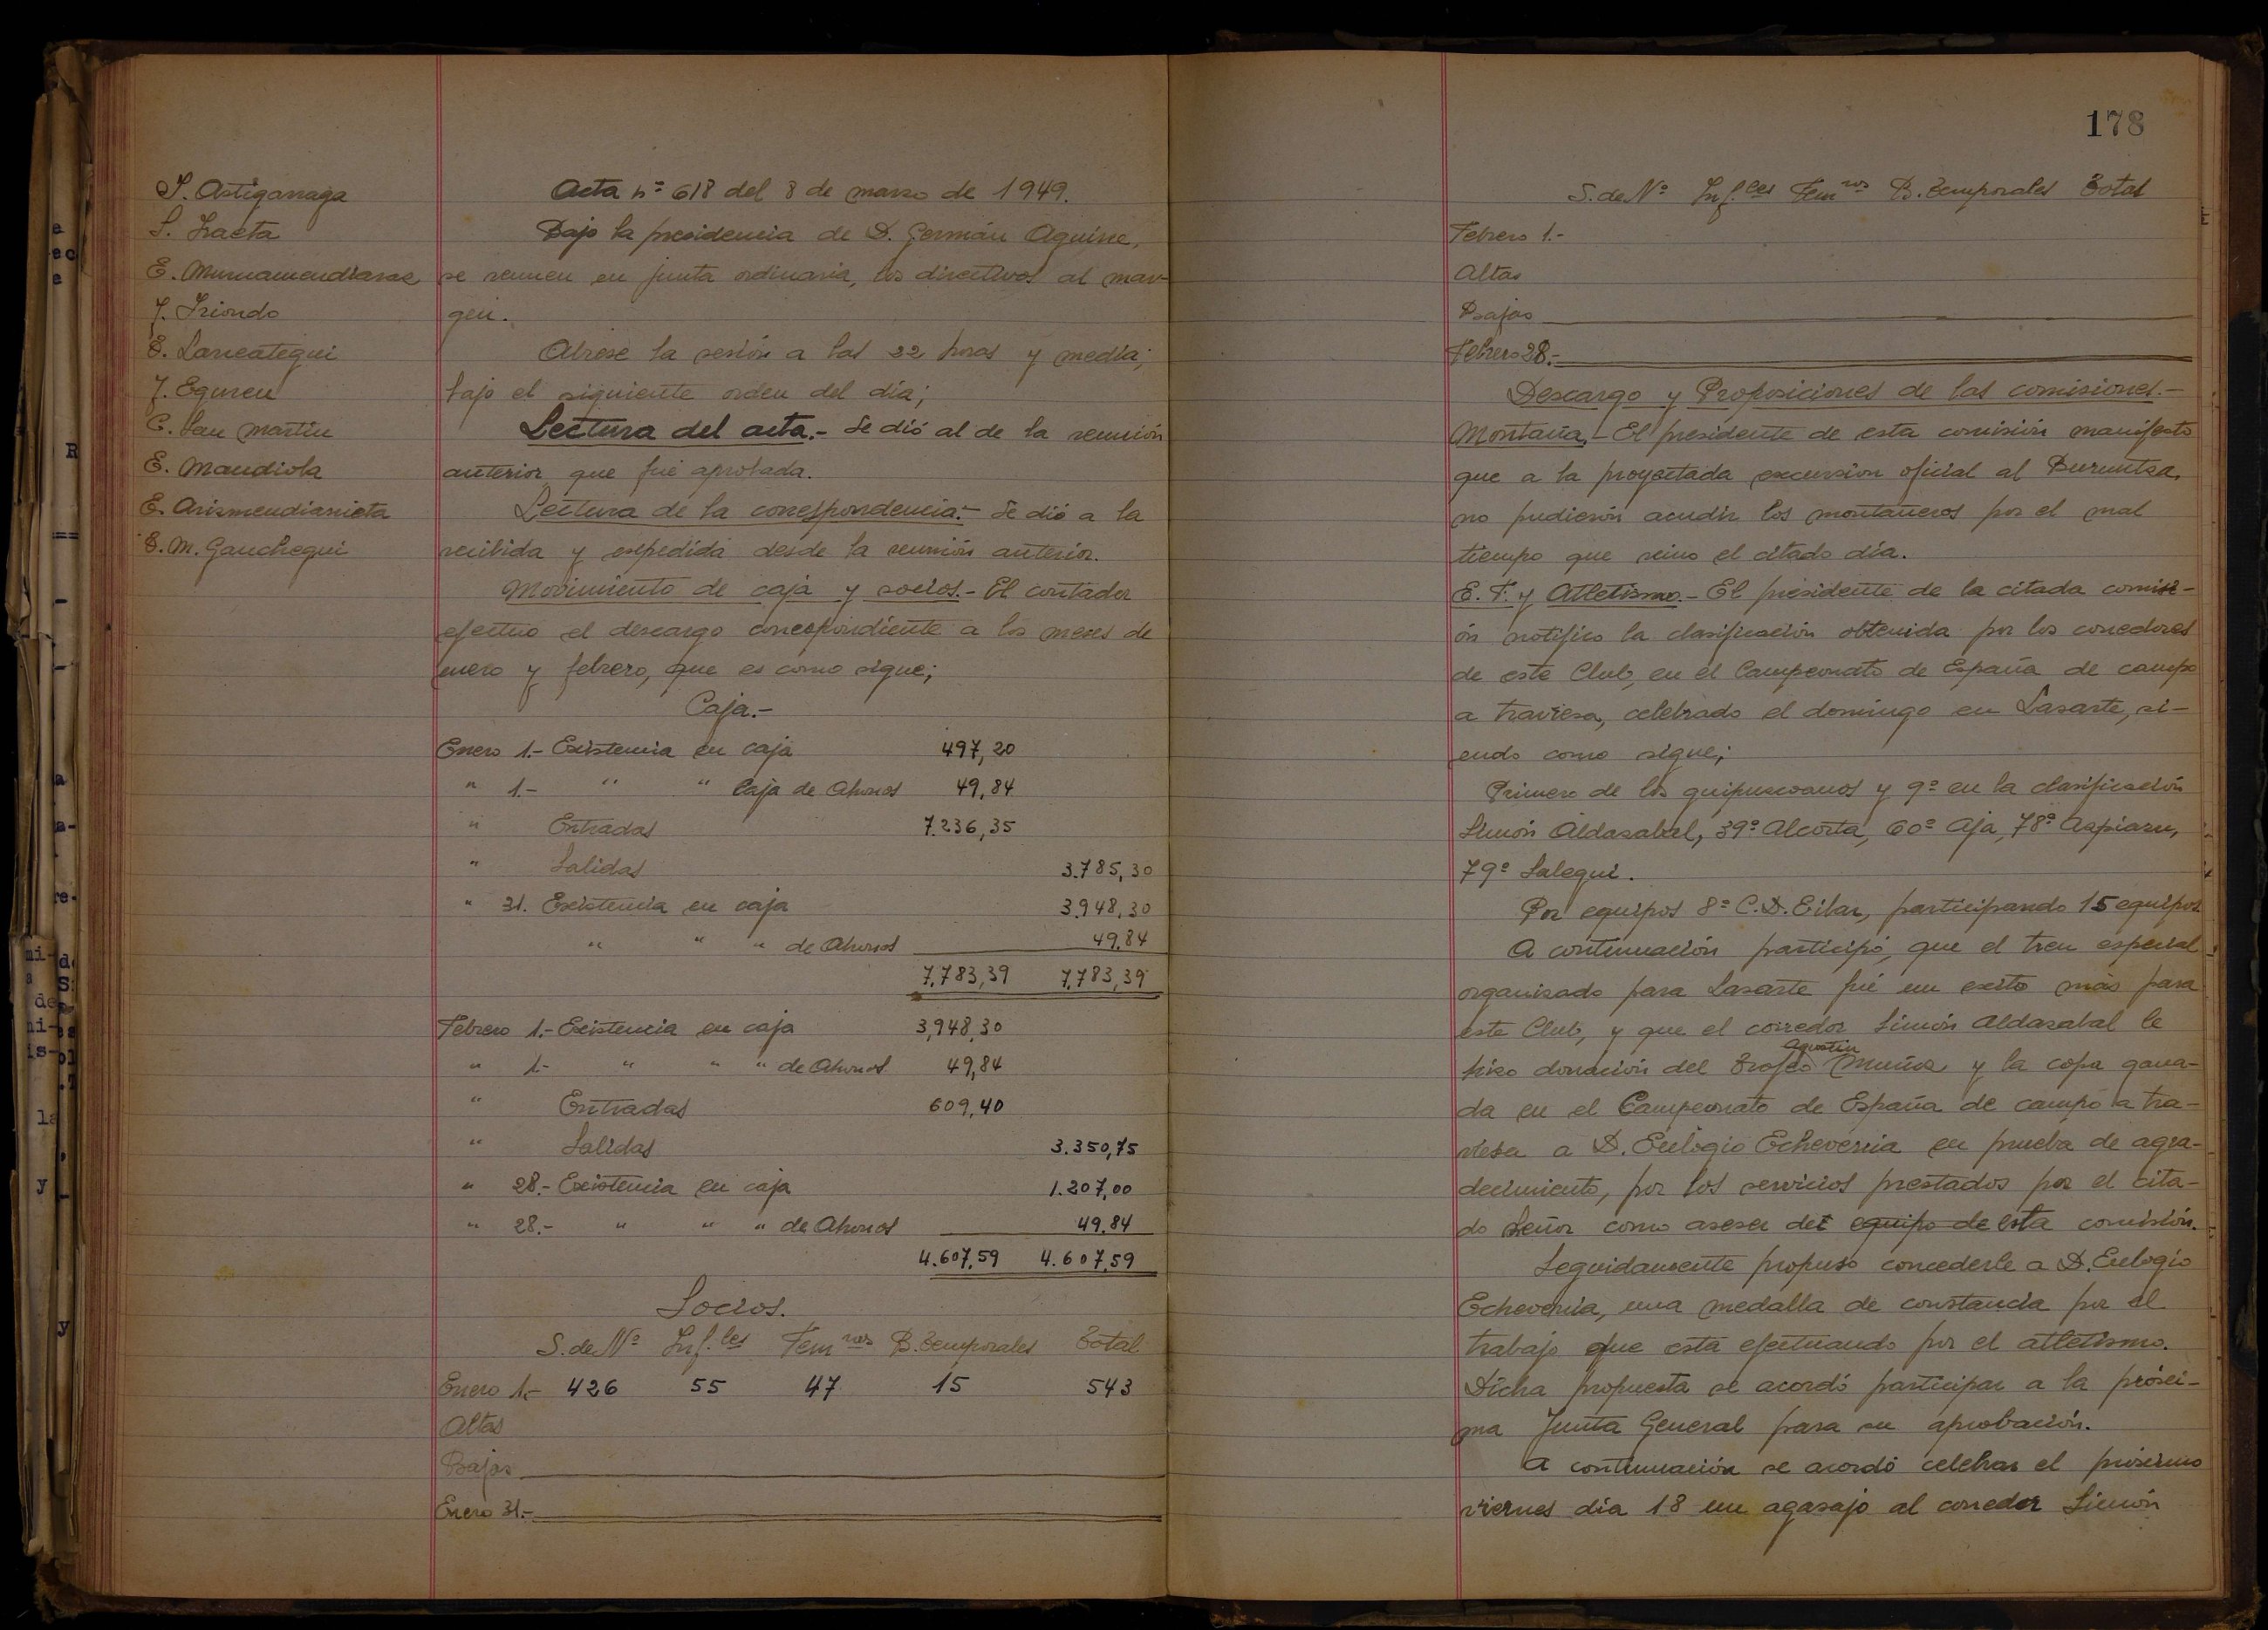 Acta nº 618 del 8 de marzo de 1949.
Bajo la presidencia de D. Germán Aguirre,
se reunen en junta ordinaria, los directivos al mar-
gen.
Abrese la sesión a las 22 horas y media,
bajo el siguiente orden del día;
Lectura del acta.- Se dió al de la reunión
anterior que fué aprobada.
Lectura de la correspondencia.- Se dió a la
recibida y expedida desde la reunión anterior.
Movimiento de caja y socios.- El contador
efectuo el descargo correspondiente a los meses de
enero y febrero, que es como sigue;
Caja.-
Enero 1.- Existencia en caja 497,20
" 1.- " " Caja de Ahorros 49,84
" Entradas 7.236,35
" Salidas 3.785,30
" 31. Existencia en caja 3.948,30
" " " de Ahorros 49.84
7.783,39 7.783,39
Febrero 1.- Existencia en caja 3,948,30
" 1.- " " " de Ahorros 49,84
" Entradas 609,40
" Salidas 3.350,75
" 28.- Existencia en caja 1.207,00
" 28.- " " " de Ahorros 49.84
4.607,59 4.607,59
Socios.
S. de Nº Inf.les Fem.nos B. Temporales Total
Enero 1.- 426 55 47 15 543
Altas
Bajas
Enero 31.-
S. Astigarraga
S. Iraeta
E. Murnamendiaraz
J. Iriondo
E. Larreategui
J. Eguren
C. San Martin
E. Mandiola
E. Arismendiarrieta
S. M. Ganchegui
178
S. de Nº Inf.les Fem.nos B. Temporales Total
Febrero 1.-
Altas
Bajas
Febrero 28.-
Descargo y Proposiciones de las comisiones.-
Montaña.- El presidente de esta comisión manifesto
que a la proyectada excursion oficial al Burumtza,
no pudierón acudir los montañeros por el mal
tiempo que reino el citado día.
E. F. y Atletismo.- El presidente de la citada comisi-
ón notifico la clasificación obtenida por los corredores
de este Club, en el Campeonato de España de campo
a traviesa, celebrado el domingo en Lasarte, si-
endo como sigue;
Primero de los guipuzcoanos y 9º en la clasificación
Simón Aldazabal, 39º Alcorta, 60º Aja, 78º Azpiazu,
79º Salegui.
Por equipos 8º C. D. Eibar, participando 15 equipos
A continuación participó, que el tren especial
organizado para Lasarte fué un exito más para
este Club, y que el corredor Simón Aldazabal le
hizo donación del Trofeo Agustin Muñoz y la copa gana-
da en el Campeonato de España de campo a tra-
viesa a D. Eulogio Echeverria en prueba de agra-
decimiento, por los servicios prestados por el cita-
do Señor como asesor del equipo de esta comisión.
Seguidamente propuso concederle a D. Eulogio
Echeverria, una medalla de constancia por el
trabajo que está efectuando por el atletismo.
Dicha propuesta se acordó participar a la próxi-
ma Junta General para su aprobación.
A continuación se acordó celebrar el próximo
viernes día 18 un agasajo al corredor Simón